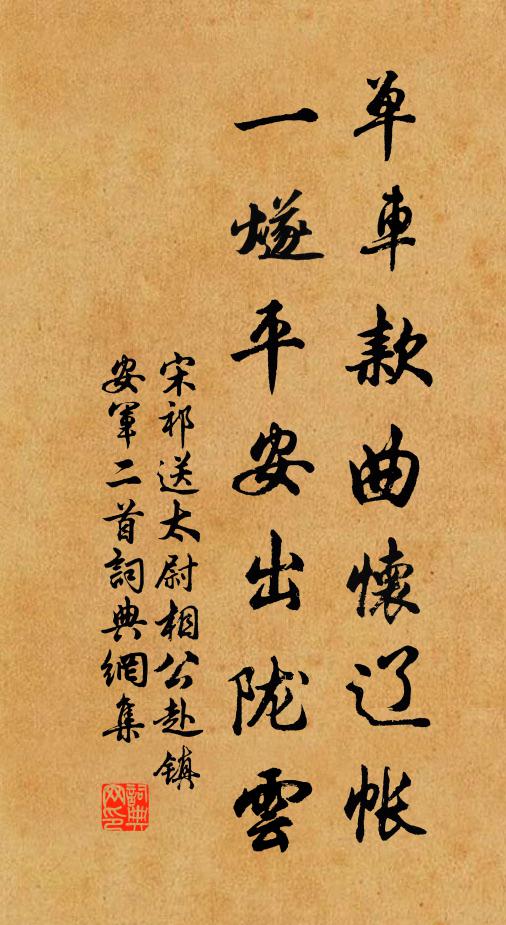 单車款曲懷辽帐
一燧平安出陇雲
宋祁送太尉相公赴镇
安軍二首詞典網集